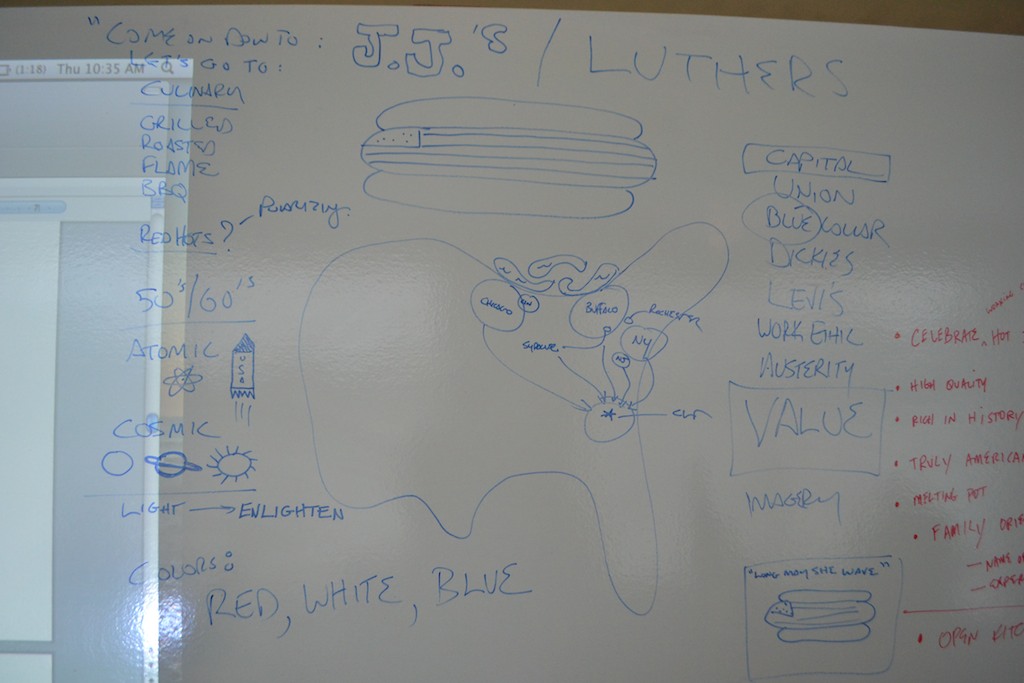 "COME ON DOWN TO: J.J.'S / LUTHERS
LET'S GO TO:
(1:18) Thu 10:35 AM
CULINARY
GRILLED
ROASTED
FLAME
BBQ
REDHOTS? POLARIZING.
50'S/60'S
ATOMIC
USA
COSMIC
LIGHT → ENLIGHTEN
COLORS:
RED, WHITE, BLUE
CHICAGO
BUFFALO
ROCHESTER
SYRACUSE
NY
NJ
CLT
CAPITAL
UNION
BLUE COLLAR
DICKIES
LEVI'S
WORK ETHIC
AUSTERITY
VALUE
IMAGERY
"LONG MAY SHE WAVE"
• CELEBRATE HOT
WORKING
• HIGH QUALITY
• RICH IN HISTORY
• TRULY AMERICAN
• MELTING POT
• FAMILY ORIE
— NAME
— EXPE
• OPEN KITC